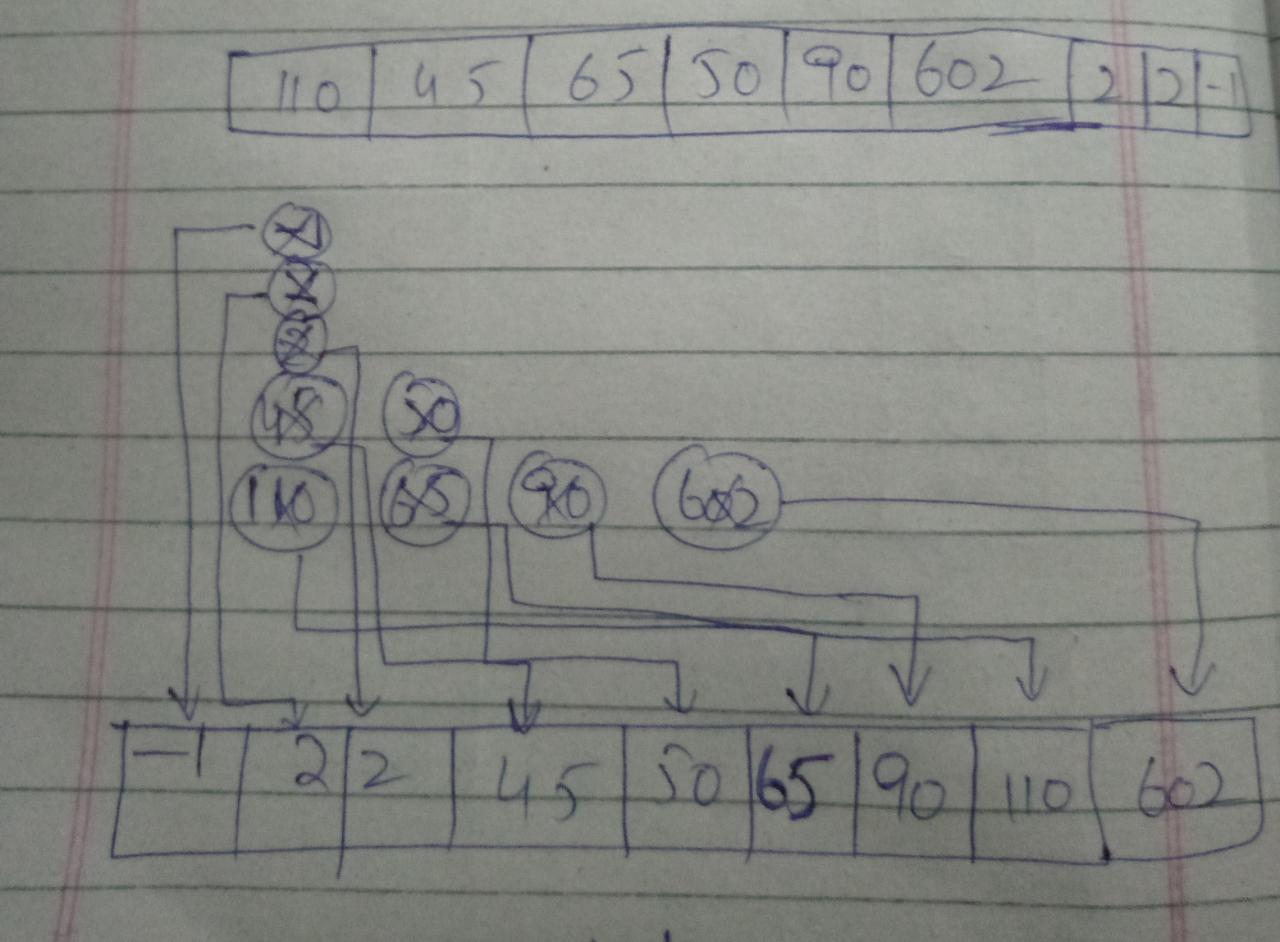 110 45 65 50 90 602 2 2 -1
-1
2
2
45 50
110 65 90 602
-1 2 2 45 50 65 90 110 602